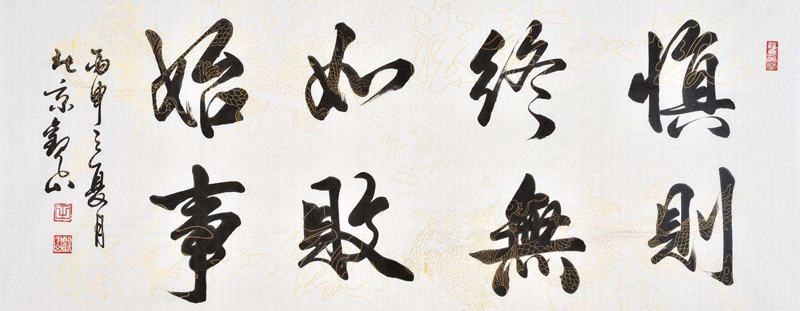 慎終如始
則無敗事
丙申之夏月
京